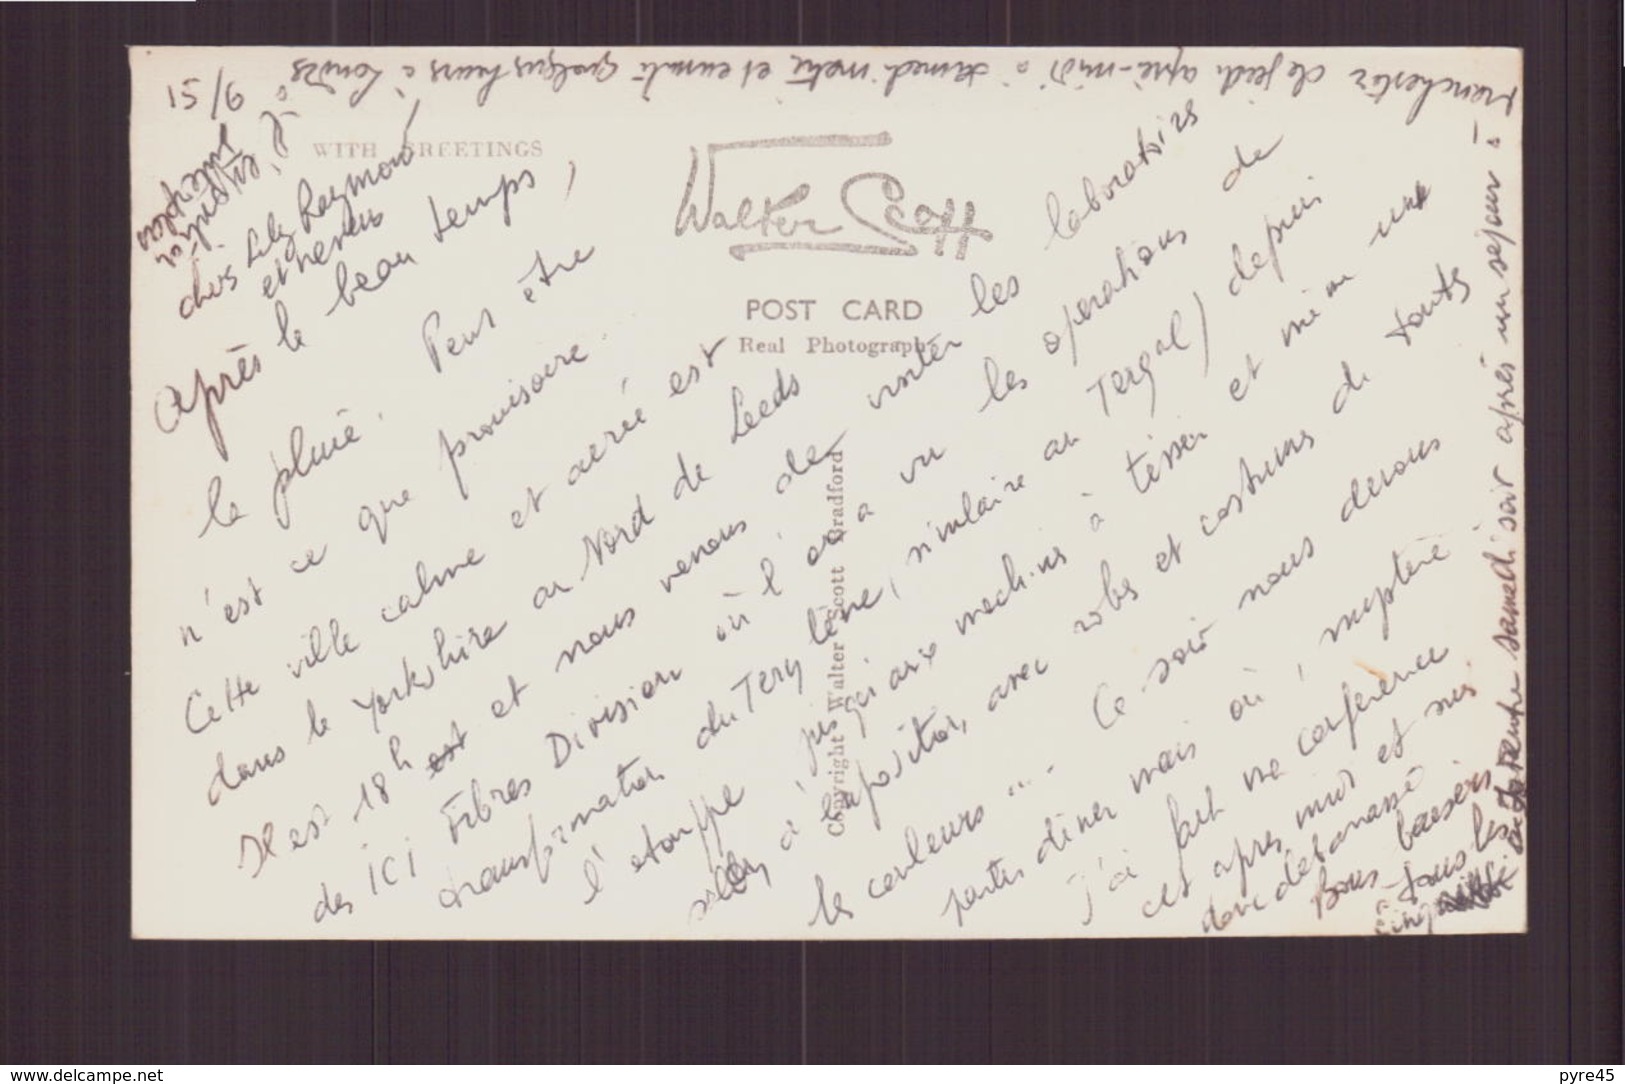 WITH GREETINGS
Walter Scott
POST CARD
Real Photograph
Copyright Walter Scott Bradford
9/51
chers Lily Raymond
et neveux
Après le beau temps,
la pluie. Peut être
n'est ce que provisoire.
Cette ville calme et aérée est
dans le Yorkshire au Nord de Leeds
Il est 18h et nous venons de visiter les laboratoires
des ICI Fibres Division où l'on a vu les opérations de
transformation du Terylène, (similaire au Tergal) depuis
l'étoupe jusqu'aux machines à tisser et même une
exposition, avec robes et costumes de toutes
les couleurs ... Ce soir nous devons
partir dîner mais où, mystère
J'ai fait ma conférence
cet après midi et suis
donc débarrassé
Bons baisers
à tous les
cinq
samedi soir après un séjour à
Manchester de jeudi après-midi à samedi matin et ensuite quelques heures à Londres